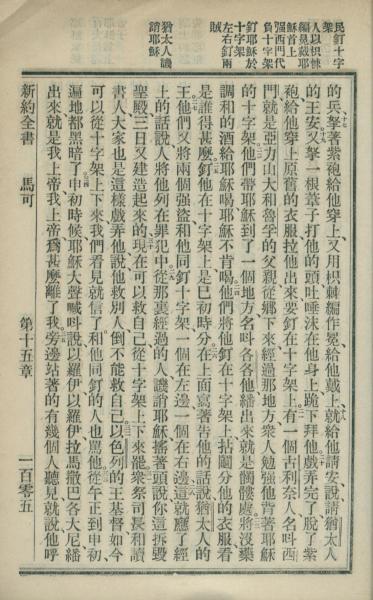 民釘十字
架
人以枳棘
編冕戴耶
穌首上
强西門代
負十字架
釘耶穌於
十字架
左右釘兩
賊
猶太人譏
誚耶穌
的兵、拏著紫袍給他穿上、又用枳棘編作冕給他戴上、就給他請安、說、請猶太人
的王安、又拏一根葦子打他的頭、吐唾沫在他身上、跪下拜他、戲弄完了、脫了紫
袍、給他穿上原舊的衣服、拉他出來、要釘在十字架上、有一個古利奈人名叫西
門、就是亞力山大和魯孚的父親、從鄉下來、經過那地方、衆人勉强他背著耶穌
的十字架、他們帶耶穌到了一個地方、名叫各各他、繙出來就是髑髏處、將沒藥
調和的酒給耶穌喝、耶穌不肯喝、他們將他釘在十字架上、拈鬮分他的衣服、看
是誰得甚麼、釘他在十字架上、是巳初時分、在上面寫著告他的話說、猶太人的
王、他們又將兩個强盜和他同釘十字架、一個在左邊、一個在右邊、這就應了經
上的話說、人將他列在罪犯中、從那裏經過的人、譏誚耶穌、搖著頭說、你這拆毀
聖殿、三日又建造起來的、現在可以救自己、從十字架上下來罷、衆祭司長和讀
書人、大家也是這樣戲弄他說、他救別人、倒不能救自己、以色列的王基督、如今
可以從十字架上下來、我們看見就信了、和他同釘的人、也罵他、從午正到申初、
遍地都黑暗了、申初時候、耶穌大聲喊叫說、以羅伊以羅伊拉馬撒巴各大尼、繙
出來就是我上帝、我上帝、爲甚麼離了我、旁邊站著的有幾個人聽見、就說、他呼
新約全書
馬可
第十五章
一百零五